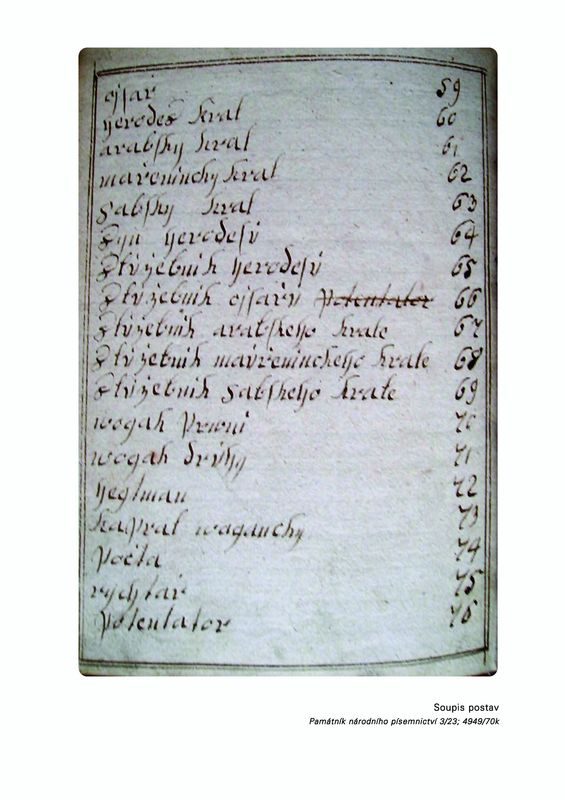 cysar 59
herodes kral 60
arabsky kral 61
mařeninsky kral 62
sabsky kral 63
Syn herodesů 64
Služebnik herodesů 65
Služebnik cysařů Potentator 66
Služebnik arabskeho krale 67
Služebnik mauřeninskeho krale 68
Služebnik sabskeho krale 69
wogak Prwni 70
wogak druhy 71
hegtman 72
kapral wogansky 73
Pocta 74
rychtař 75
Potentator 76
Soupis postav
Památník národního písemnictví 3/23; 4949/70k